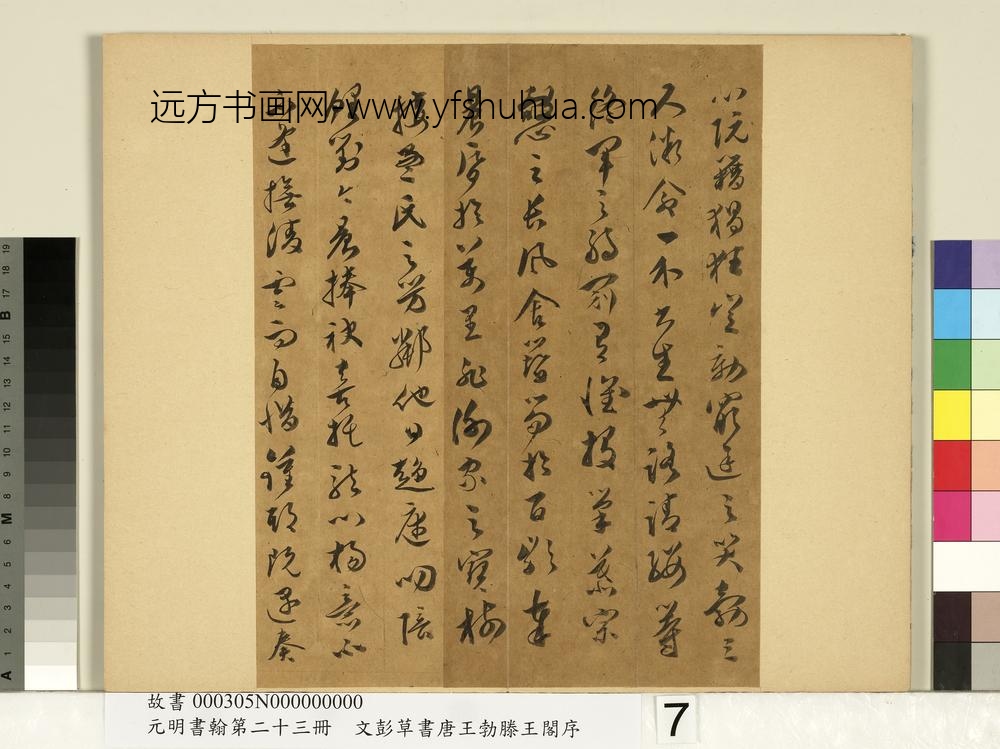 远方书画网 www.yfshuhua.com
心阮籍猖狂豈効窮途之哭勃三
尺微命一介書生無路請纓等
終軍之弱冠有懷投筆慕宗
慤之長風舍簪笏於百齡奉
晨昏於萬里非謝家之寶樹
接孟氏之芳鄰他日趨庭叨陪
鯉對今晨捧袂喜托龍門楊意不
逢撫淩雲而自惜鍾期既遇奏
故書 000305N000000000
元明書翰第二十三冊 文彭草書唐王勃滕王閣序
7
A 1 2 3 4 5 6 M 8 9 10 11 12 13 14 15 B 17 18 19